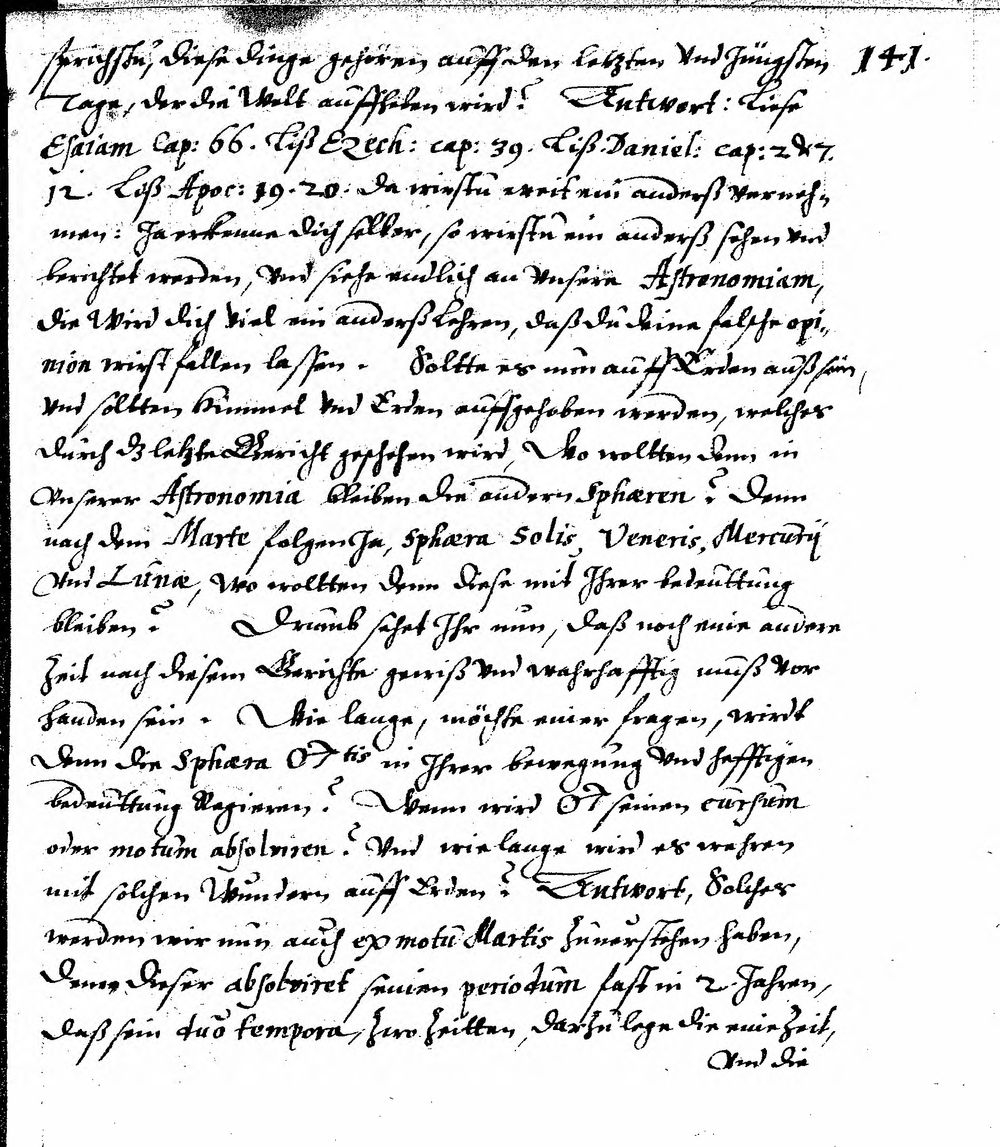 sprichstu, diese dinge gehören auff den letzten Vnd Jüngsten 141.
Tage, der die Welt auffheben wird? Antwort: Liese
Esaiam Cap: 66. Liß Ezech: cap: 39. Liß Daniel: cap: 2 & 7.
12. Liß Apoc: 19. 20. da wirstu weit ein anderß verneh-
men: Ja erkenne dich selber, so wirstu ein anderß sehen vnd
berichtet werden, Vnd siehe endlich an Vnsere Astronomiam,
die Wird dich Viel ein anderß Lehren, daß du deine falsche opi-
nion wirst fallen lassen. Soltte es nun auff Erden auß sein,
Vnd soltten Himmel Vnd Erden auffgehoben werden, welches
durch dz letzte Gericht geschehen wird, Wo woltten denn in
Vnserer Astronomia bleiben die andern Sphæren? Denn
nach dem Marte folgen Ja, Sphæra Solis, Veneris, Mercurij
Vnd Lunæ, Wo woltten denn diese mit Ihrer bedeuttung
bleiben? Drumb sehet Ihr nun, daß noch eine andere
Zeit nach diesem Gerichte gewiß Vnd wahrhafftig muß vor
handen sein. Wie lange, möchte einer fragen, wirdt
denn die Sphæra ♂tis in Ihrer bewegung Vnd hefftigen
bedeuttung Regieren? Wenn wird ♂ seinen cursum
oder motum absolviren? Vnd wie lange wird es wehren
mit solchen Wundern auff Erden? Antwort, Solches
werden wir nun auch ex motu Martis zunerstehen haben,
denn dieser absolviret seinen periodum fast in 2. Jahren,
daß sein duo tempora, zwo Zeitten, darzu lege die eine Zeit,
Vnd die